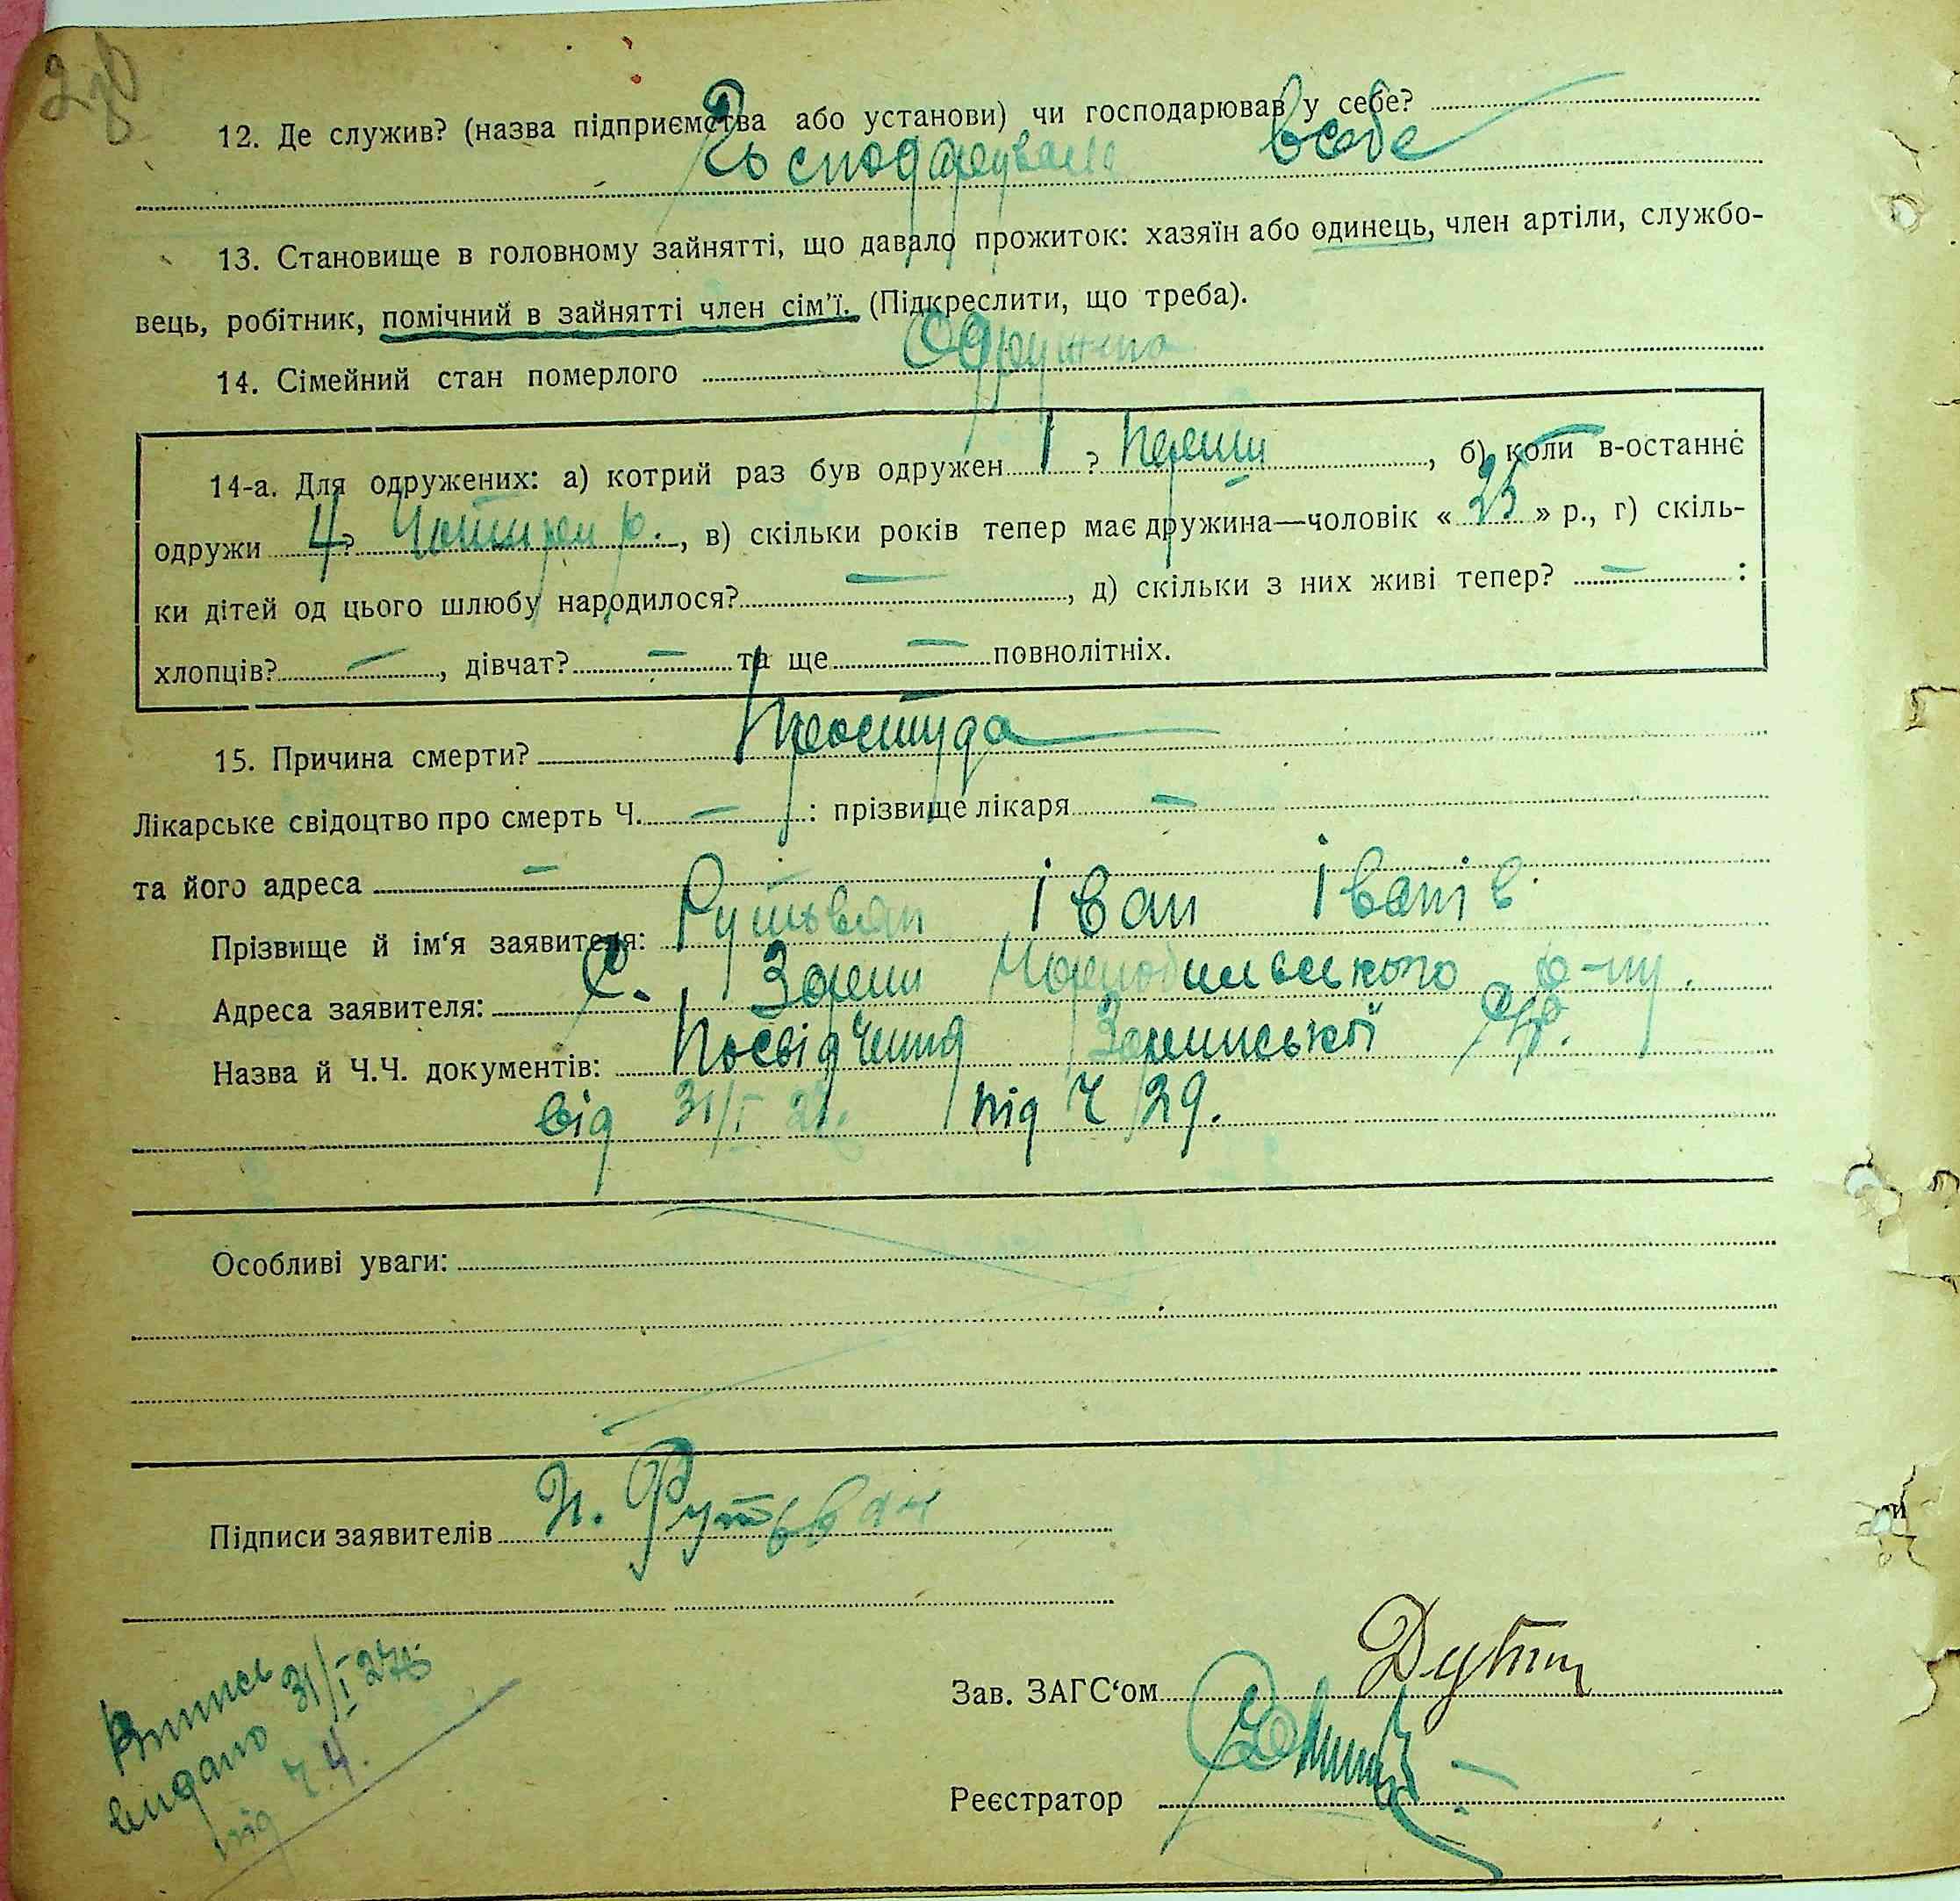 2зв
12. Де служив? (назва підприємства або установи) чи господарював у себе?
Господарувала вебе
13. Становище в головному зайнятті, що давало прожиток: хазяїн або одинець, член артіли, службо-
вець, робітник, помічний в зайнятті член сім'ї. (Підкреслити, що треба).
14. Сімейний стан померлого Одружена
14-а. Для одружених: а) котрий раз був одружен 1 ? перший, б) коли в-останнє
одружи 4 ? Чотири р., в) скільки років тепер має дружина—чоловік « 25 » р., г) скіль-
ки дітей од цього шлюбу народилося? —, д) скільки з них живі тепер? — :
хлопців? —, дівчат? — та ще — повнолітніх.
15. Причина смерти? Простуда
Лікарське свідоцтво про смерть Ч. — : прізвище лікаря —
та його адреса —
Прізвище й ім'я заявителя: Рутьван Іван Іванів
Адреса заявителя: С. Зорин Чорнобильського р-ну.
Назва й Ч.Ч. документів: Посвідчення Зоринської с/р.
від 31/I 27. під Ч 29.
Особливі уваги:
Підписи заявителів И. Рутьван
Випись
видано 31/I 27р
під Ч. 4.
Зав. ЗАГС'ом
Реєстратор